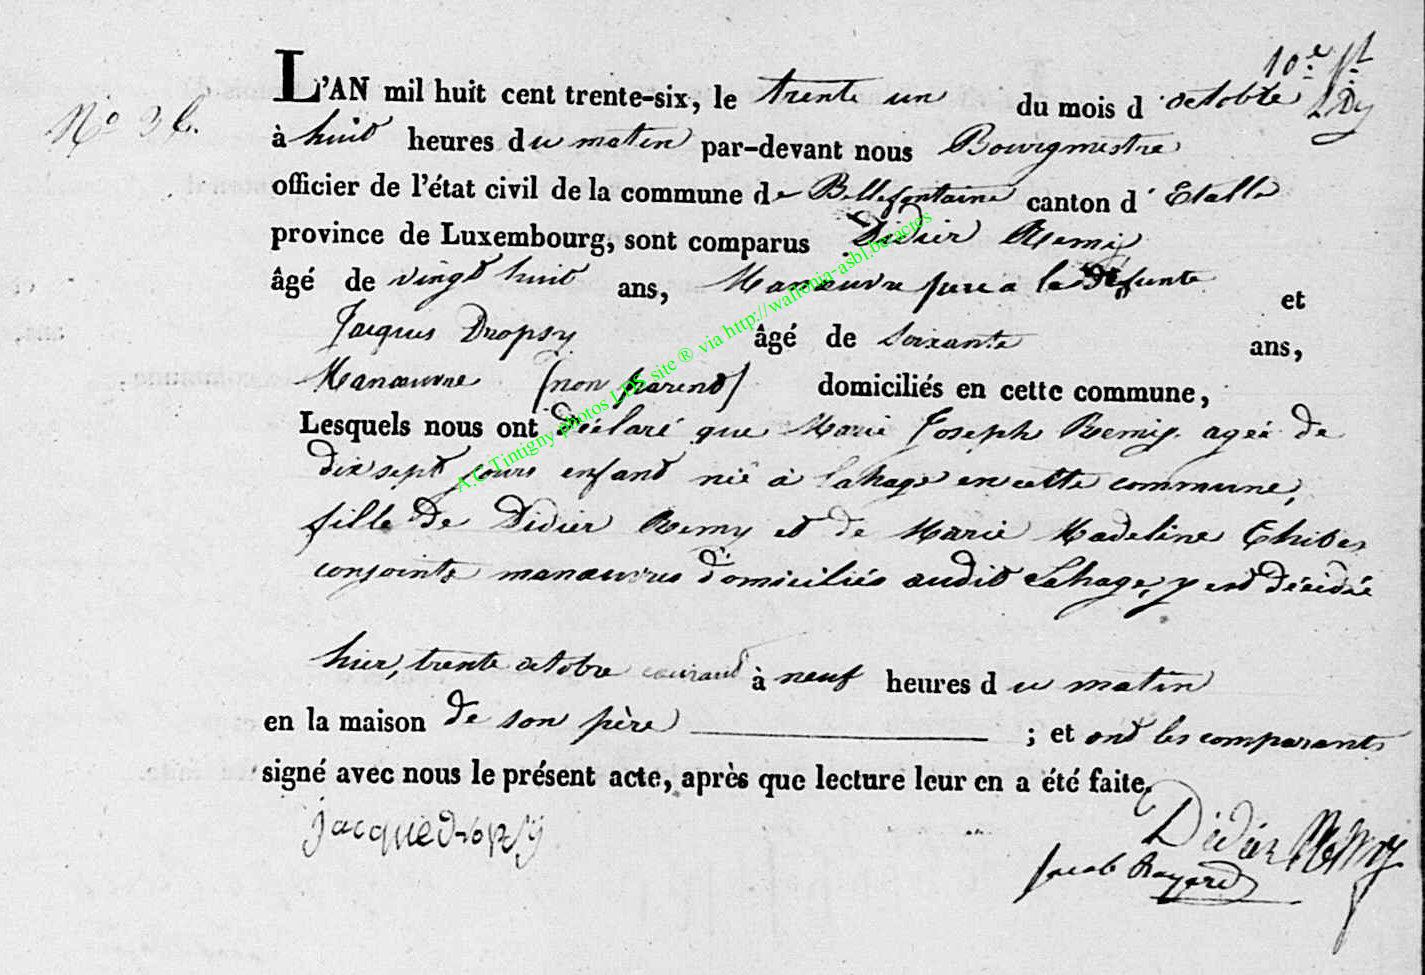 10.e
N.o 36.
L'AN mil huit cent trente-six, le trente un du mois d'octobre
à huit heures du matin par-devant nous Bourgmestre
officier de l'état civil de la commune de Bellefontaine canton d'Etalle
province de Luxembourg, sont comparus Didier Remy
âgé de vingt huit ans, Manœuvre pere a la defunte et
Jacques Dropsy âgé de soixante ans,
Manœuvre (non parent) domiciliés en cette commune,
Lesquels nous ont déclaré que Marie Joseph Remy agée de
dix sept jours enfant née à Lahage en cette commune,
fille de Didier Remy et de Marie Madeline
conjoints manœuvres domiciliés audit Lahage, y est décédée
hier, trente octobre courant à neuf heures du matin
en la maison de son père ; et ont les comparants
signé avec nous le présent acte, après que lecture leur en a été faite.
jacque dropsy Didier Remy
Jacob
A.C Tintigny photos LDS site ® via http://wallonia-asbl.be/actes